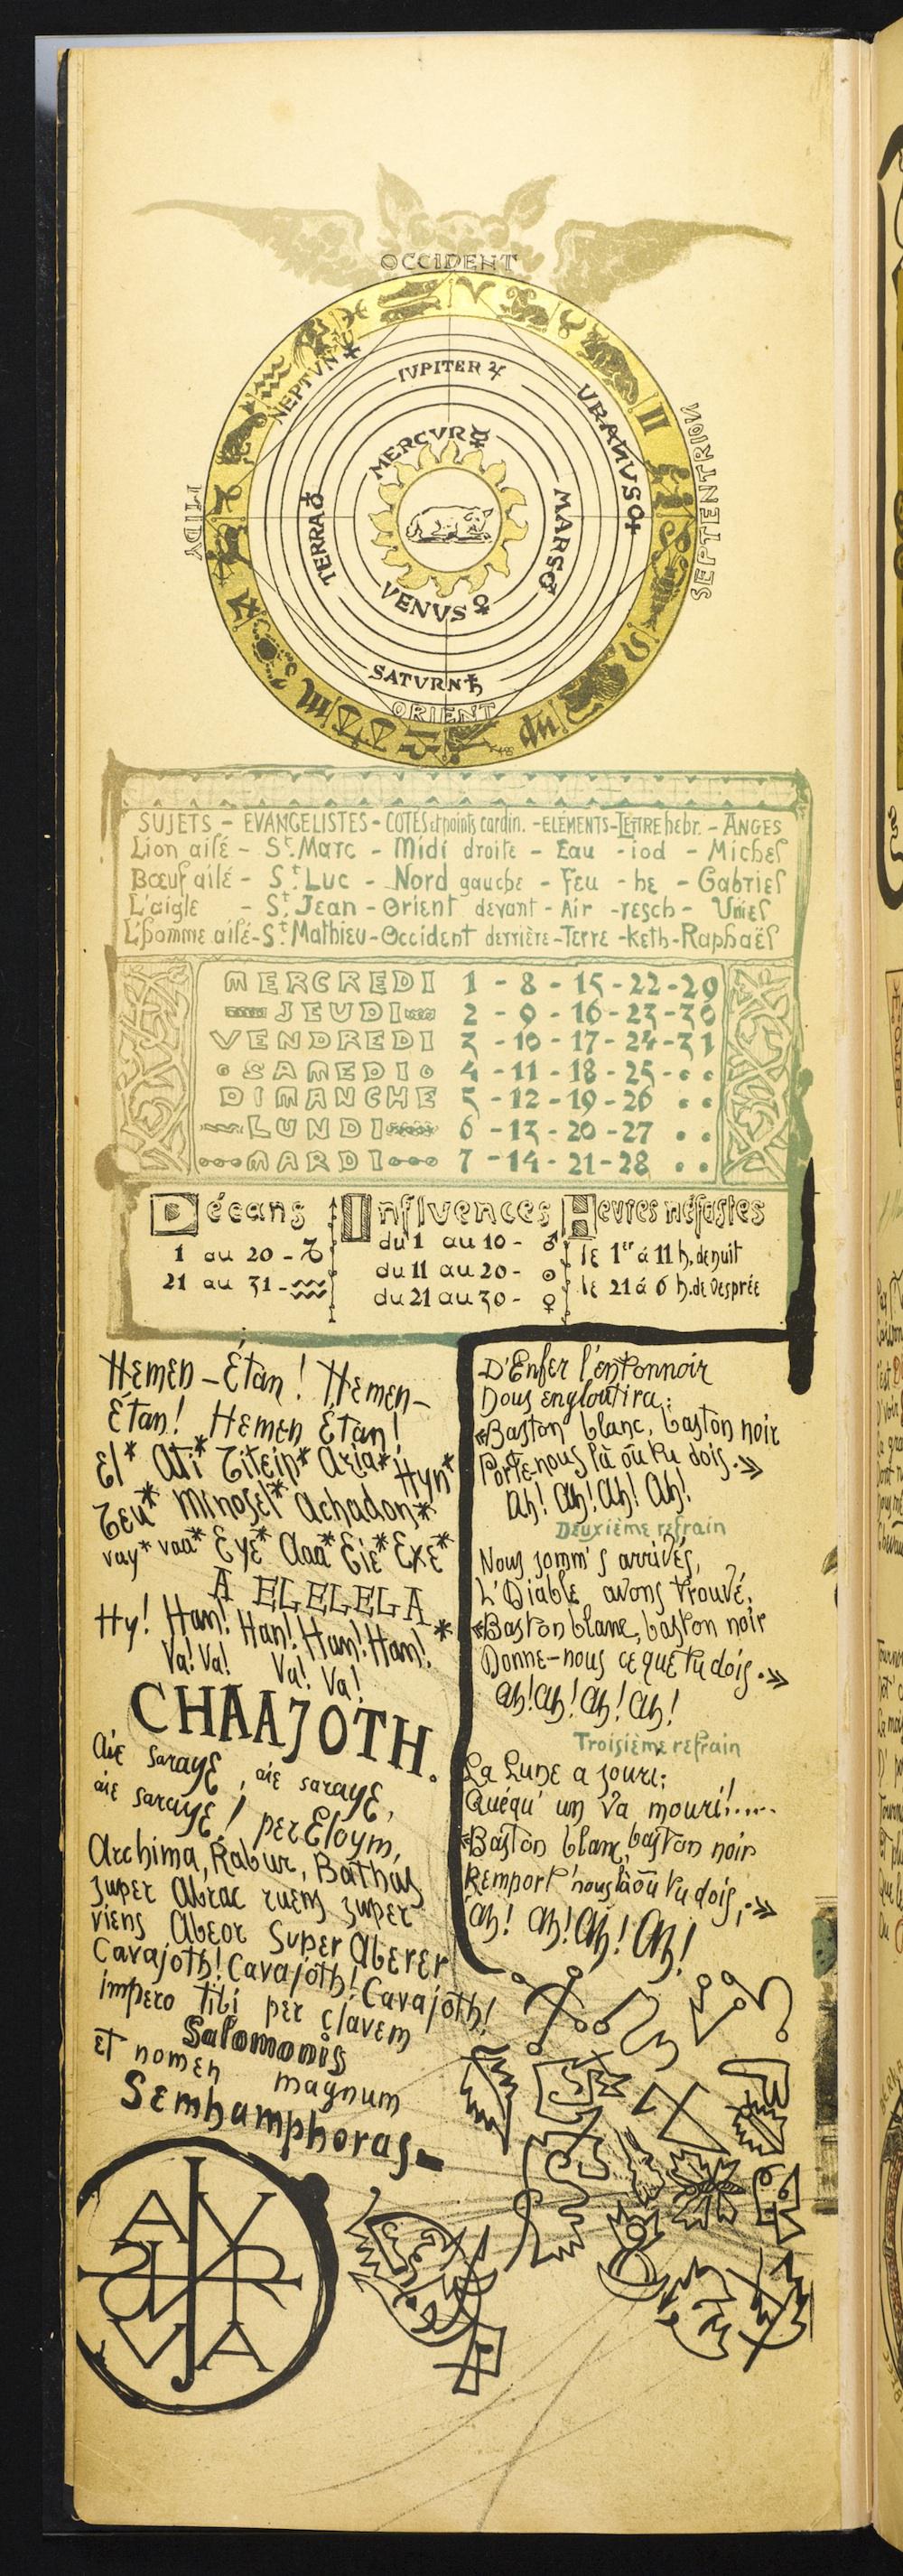 OCCIDENT
NEPTVN ♆
IVPITER ♃
VRANUS
SEPTENTRION
MERCVR ☿
MIDY
TERRA ♁
MARS ♂
VENUS ♀
SATURN ♄
ORIENT
SUJETS - EVANGELISTES - COTÉS et points cardin. - ELÉMENTS - LETTRE hebr. - ANGES
Lion ailé - St. Marc - Midi droite - Eau - iod - Michel
Bœuf ailé - St. Luc - Nord gauche - Feu - he - Gabriel
L'aigle - St. Jean - Orient devant - Air - resch - Uriel
L'homme ailé - St Mathieu - Occident derrière - Terre - keth - Raphaël
MERCREDI 1 - 8 - 15 - 22 - 29
JEUDI 2 - 9 - 16 - 23 - 30
VENDREDI 3 - 10 - 17 - 24 - 31
SAMEDI 4 - 11 - 18 - 25 - . .
DIMANCHE 5 - 12 - 19 - 26 . .
LUNDI 6 - 13 - 20 - 27 . .
MARDI 7 - 14 - 21 - 28 . .
Décans Influences Heures néfastes
1 au 20 - ♑ du 1 au 10 - ♂ le 1er à 11 h. de nuit
21 au 31 - ♒ du 11 au 20 - ☉ le 21 à 6 h. de Vesprée
du 21 au 30 - ♀
Hemen - Étan! Hemen -
Étan! Hemen Étan!
El* Ati* Titein* Azia* Hyn*
Teu* Minosel* Achadon*
vay* vaa* Eye* Aaa* Eie* Exe*
A ELELELA
Hy! Hau! Hau! Hau! Hau!
Va! Va! Va! Va!
CHAAJOTH.
Aie saraye, aie saraye,
aie saraye! per Eloym,
Archima, Rabur, Bathas
super Abrac ruens super
viens Abeor Super Aberer
Cavajoth! Cavajoth! Cavajoth!
impero tibi per clavem
Salomonis
et nomen magnum
Semhamphoras.
D'Enfer l'entonnoir
Nous engloutira:
«Baston blanc, baston noir
Porte-nous là où tu dois.»
Ah! Ah! Ah! Ah!
Deuxième refrain
Nous somm's arrivés,
L'Diable avons trouvé.
«Baston blanc, baston noir
Donne-nous ce que tu dois.»
Ah! Ah! Ah! Ah!
Troisième refrain
La Lune a souri:
Quéqu' un va mouri!.....
«Baston blanc, baston noir
Remport' nous là où tu dois,»
Ah! Ah! Ah! Ah!